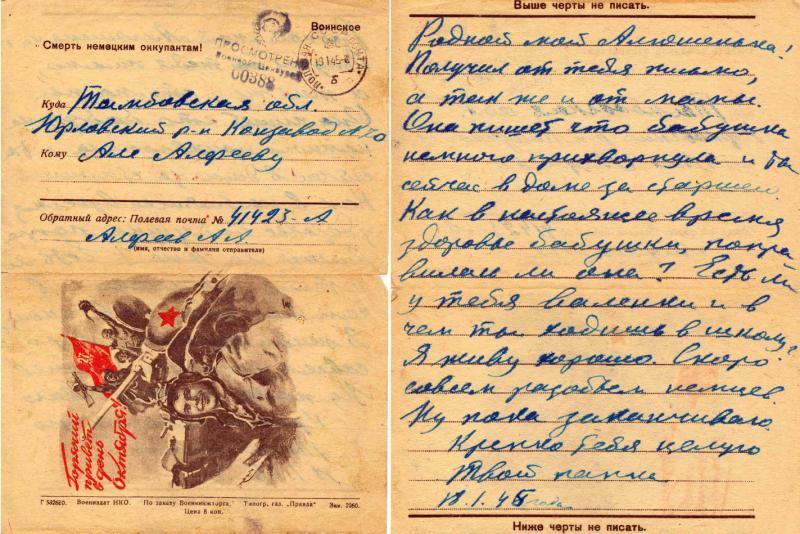 Воинское
Смерть немецким оккупантам!
ПРОСМОТРЕНО
Военной Цензурой
00388
ПОЛЕВАЯ ПОЧТА
Куда Тамбовская обл.
Юрловский р-н Конзавод №
Кому Але Алфееву
Обратный адрес: Полевая почта № 41423-А
Алфеев А.А.
(имя, отчество и фамилия отправителя)
27
Горячий
привет
в день
Октября!
Г 582680. Воениздат НКО. По заказу Военкнижторга. Типогр. газ. „Правда" Зак. 2980.
Цена 8 коп.
Выше черты не писать.
Родной мой Алюшенька!
Получил от тебя письмо,
а так же и от мамы.
Она пишет что бабушка
немного прихворнула и ты
сейчас в доме за старшего.
Как в настоящее время
здоровье бабушки, попра
вилась ли она? Есть ли
у тебя валенки и в
чем ты ходишь в школу?
Я живу хорошо. Скоро
совсем разобьем немцев
Ну пока заканчиваю
Крепко тебя целую
Твой папка
18.1.45 года
Ниже черты не писать.